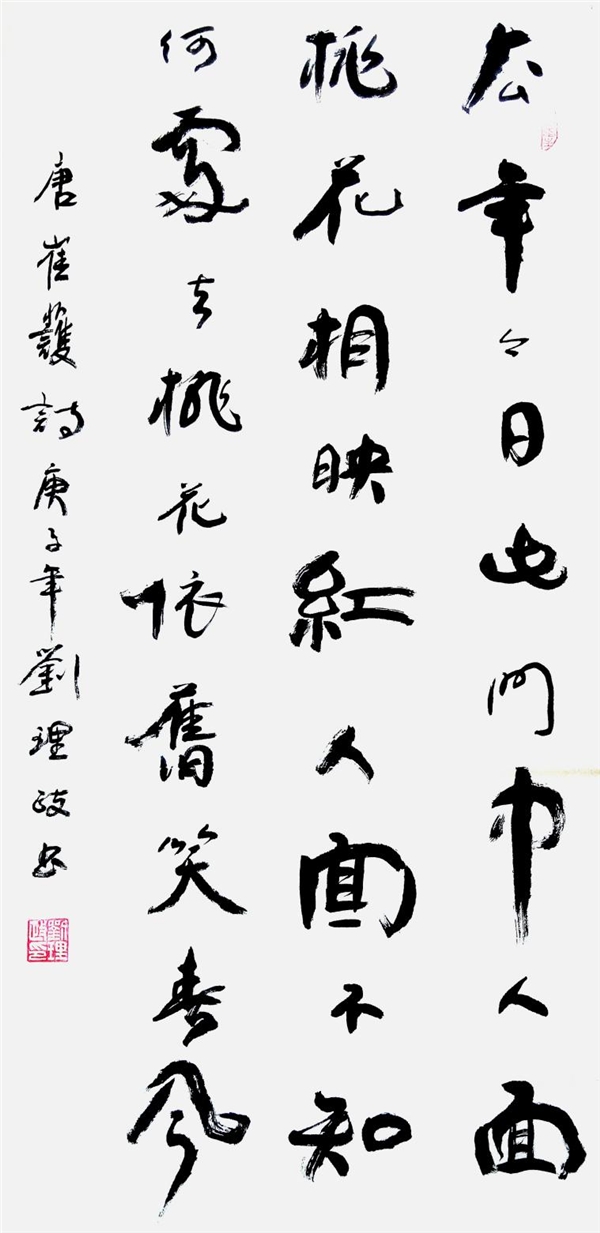 去年今日此門中人面
桃花相映紅人面不知
何處去桃花依舊笑春風
唐崔護詩庚子年劉理政書
劉理政印